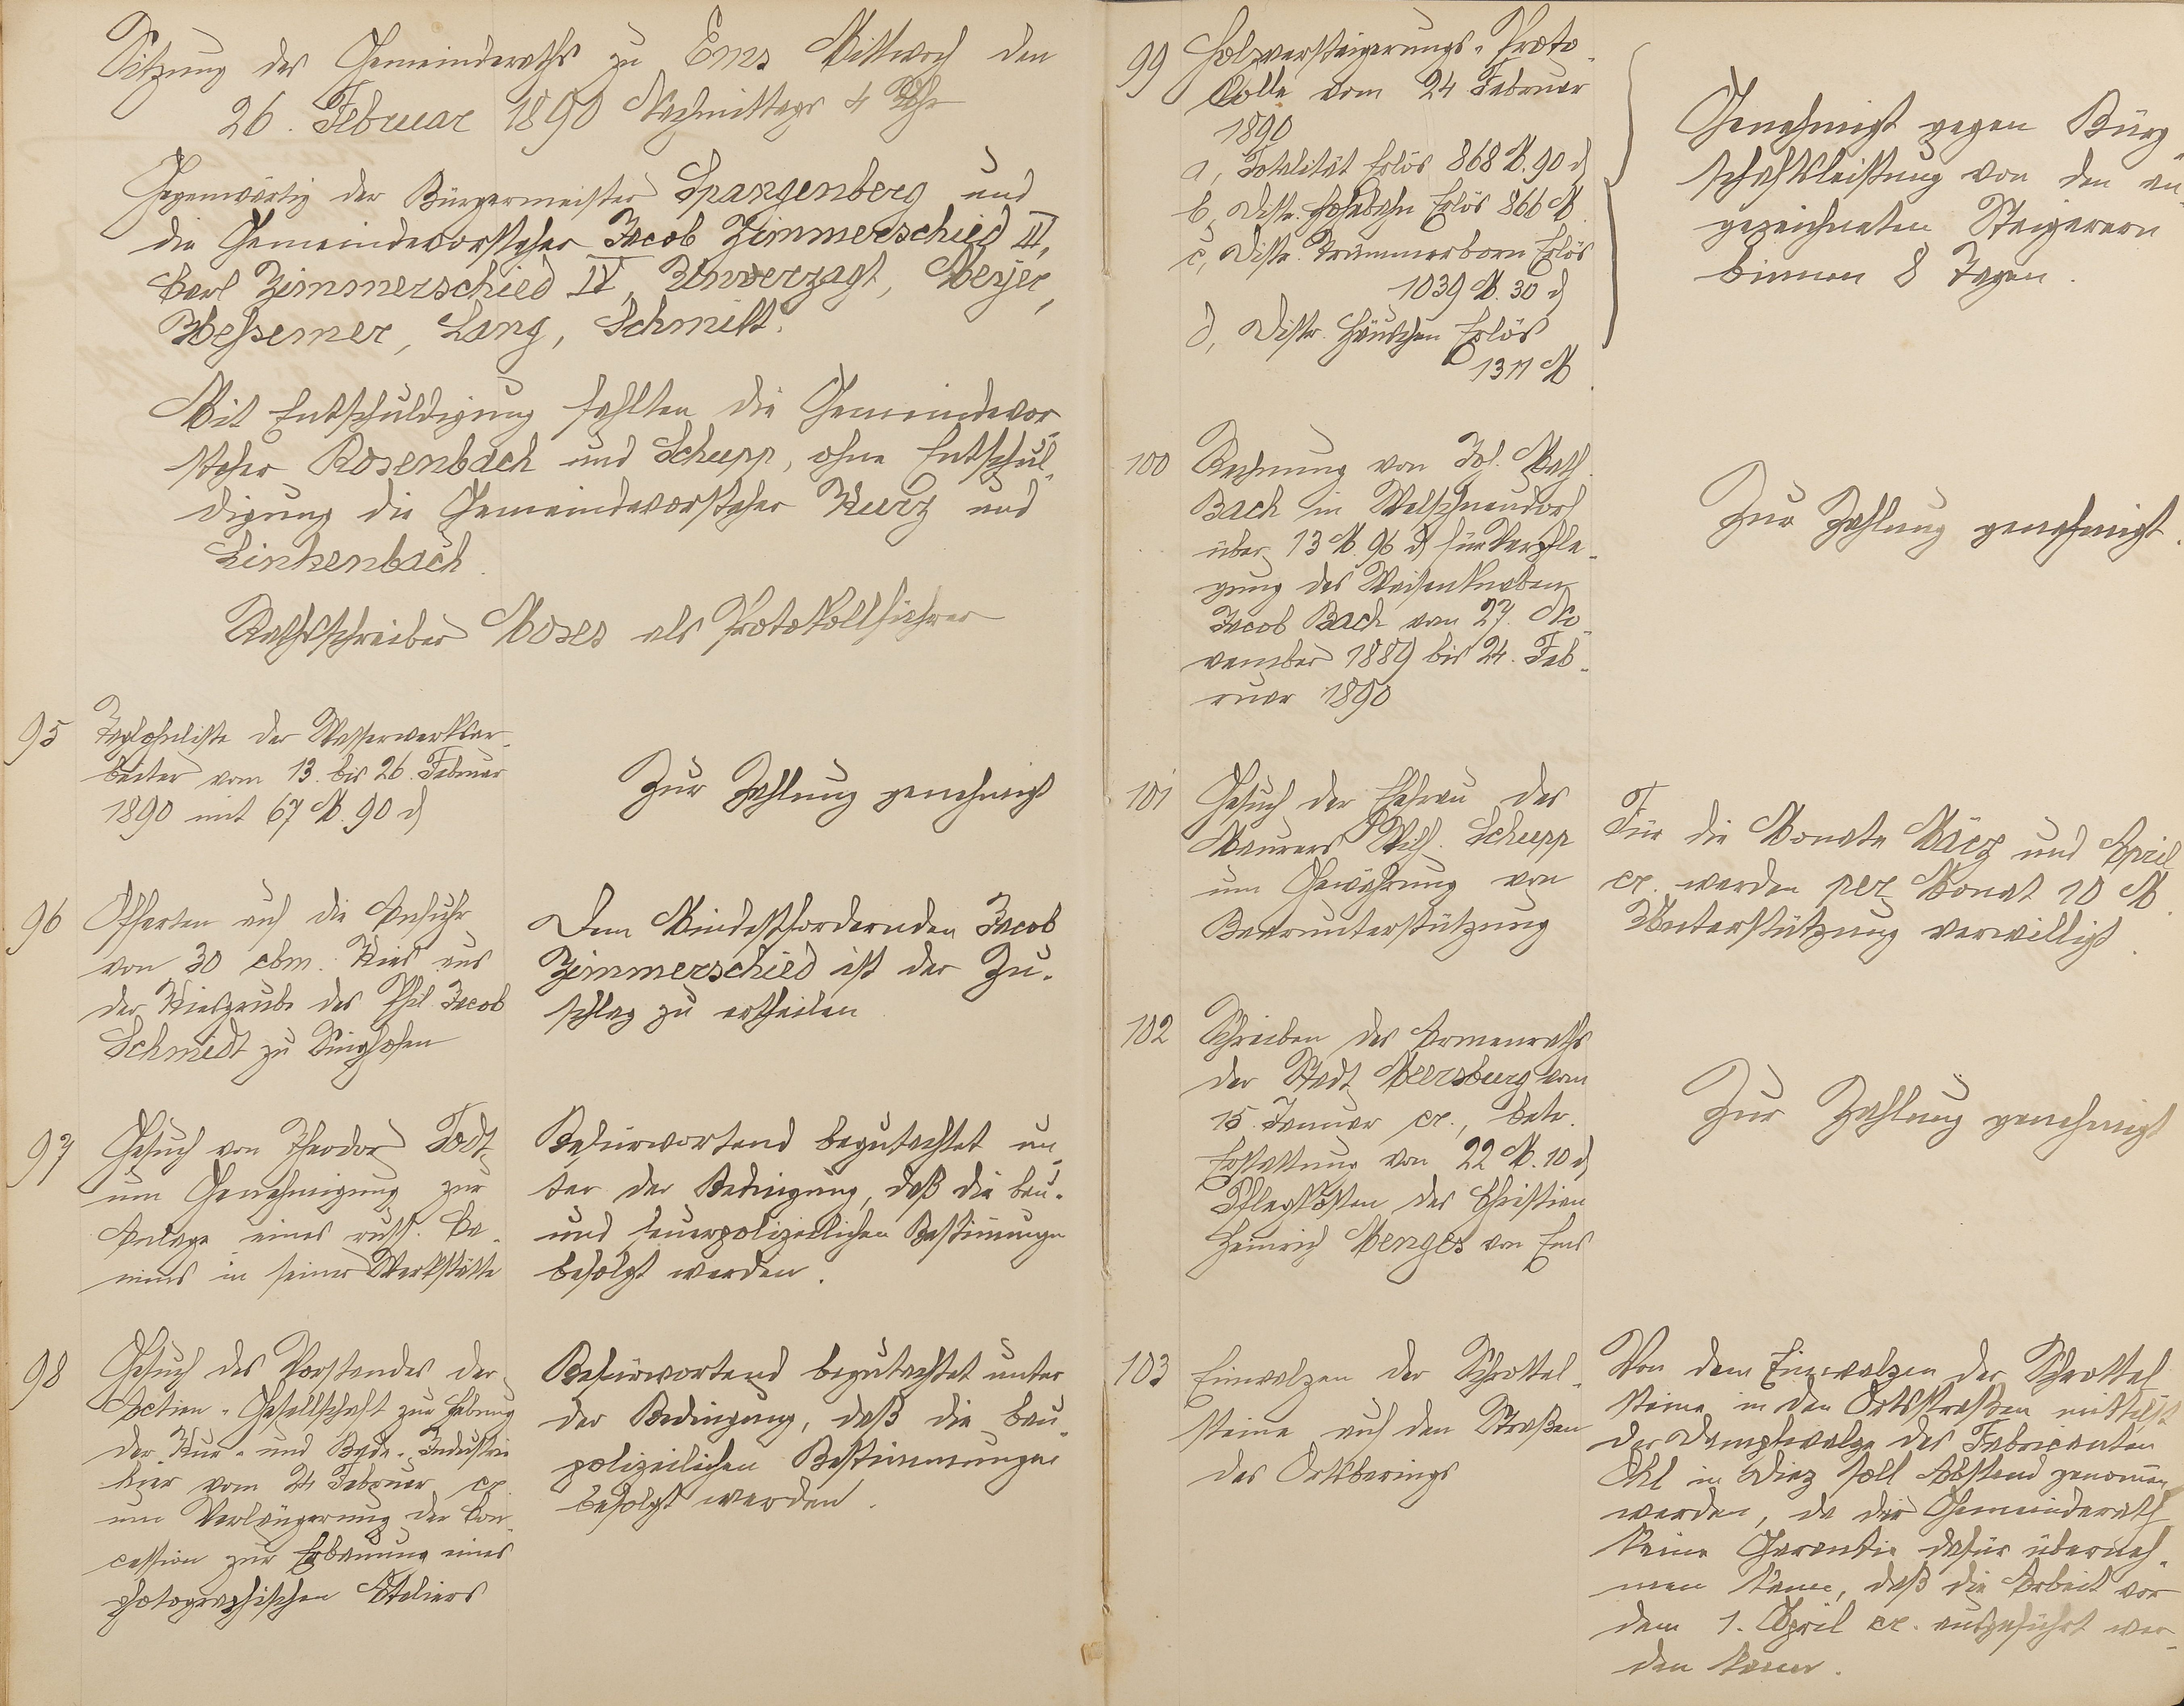 Sitzung des Gemeinderaths zu Ems Mittwoch den
26. Februar 1890 Nachmittags 4 Uhr
Gegenwärtig der Bürgermeister Spangenberg und
die Gemeindevorsteher Jacob Zimmerschied II,
Carl Zimmerschied IV, Unverzagt, Meyer,
Weßemer, Lang, Schmitt.
Mit Entschuldigung fehlten die Gemeindevor-
steher Rosenbach und Schupp, ohne Entschul-
digung die Gemeindevorsteher Kurz und
Linkenbach.
Rathsschreiber Moses als Protokollführer
95 Taglohnliste der Wasserwerksar-
beiter vom 13. bis 26. Februar
1890 mit 67 M. 90 d
Zur Zahlung genehmigt
96 Offerten auf die Anfuhr
von 30 cbm. Kies aus
der Kiesgrube des Phil. Jacob
Schmidt zu Singhofen
Dem Mindestfordernden Jacob
Zimmerschied ist der Zu-
schlag zu ertheilen
97 Gesuch von Theodor Todt
um Genehmigung zur
Anlage eines russ. Ka-
mins in seiner Werkstätte
Befürwortend begutachtet un-
ter der Bedingung, daß die bau-
und feuerpolizeilichen Bestimmungen
befolgt werden.
98 Gesuch des Vorstandes der
Actien-Gesellschaft zur Hebung
der Kur- und Bade-Industrie
hier vom 24 Februar cr.
um Verlängerung der Con-
cession zur Erbauung eines
photographischen Ateliers
Befürwortend begutachtet unter
der Bedingung, daß die bau-
polizeilichen Bestimmungen
befolgt werden.
99 Holzversteigerungs-Proto-
colle vom 24 Februar
1890
a, Totalität Erlös 868 M. 90 d
b, Distr. Hohebahn Erlös 866 M.
c, Distr. Trümmerborn Erlös
1039 M. 30 d
d, Distr. Häuschen Erlös
1311 M.
Genehmigt gegen Bürg-
schaftsleistung von den an-
gezeichneten Steigerern
binnen 8 Tagen.
100 Rechnung von Joh. Math.
Bach in Welschneudorf
über 13 M. 96 d für Verpfle-
gung des Waisenknaben
Jacob Bach vom 27. No-
vember 1889 bis 24. Feb-
ruar 1890
Zur Zahlung genehmigt.
101 Gesuch der Ehefrau des
Maurers Wilh. Schupp
um Gewährung von
Baarunterstützung
Für die Monate März und April
cr. werden per Monat 10 M.
Unterstützung verwilligt.
102 Schreiben des Armenraths
der Stadt Meersburg vom
15. Januar cr., betr.
Erstattung von 22 M. 10 d
Pflegkosten des Christian
Heinrich Menges von Ems
Zur Zahlung genehmigt
103 Einwalzen der Schrottel-
steine auf den Straßen
des Ortsberings
Von dem Einwalzen der Schrottel-
steine in den Ortsstraßen mittelst
der Dampfwalze des Fabricanten
Ohl in Diez soll Abstand genommen
werden, da der Gemeinderath
keine Garantie dafür überneh-
men kann, daß die Arbeit vor
dem 1. April cr. ausgeführt wer-
den kann.